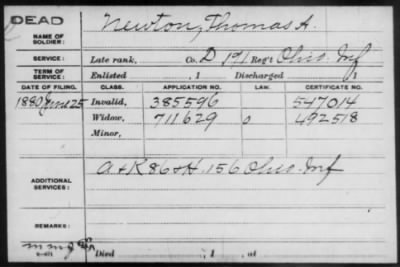 DEAD
NAME OF SOLDIER: Newton, Thomas A.
SERVICE: Late rank, Co. D 191 Reg't Ohio Inf
TERM OF SERVICE: Enlisted , 1 Discharged , 1
DATE OF FILING. CLASS. APPLICATION NO. LAW. CERTIFICATE NO.
1880 June 25 Invalid, 385596 547014
Widow, 711629 0 492518
Minor,
ADDITIONAL SERVICES: A & K 86 & H. 156 Ohio Inf
REMARKS:
Died , 1 , at